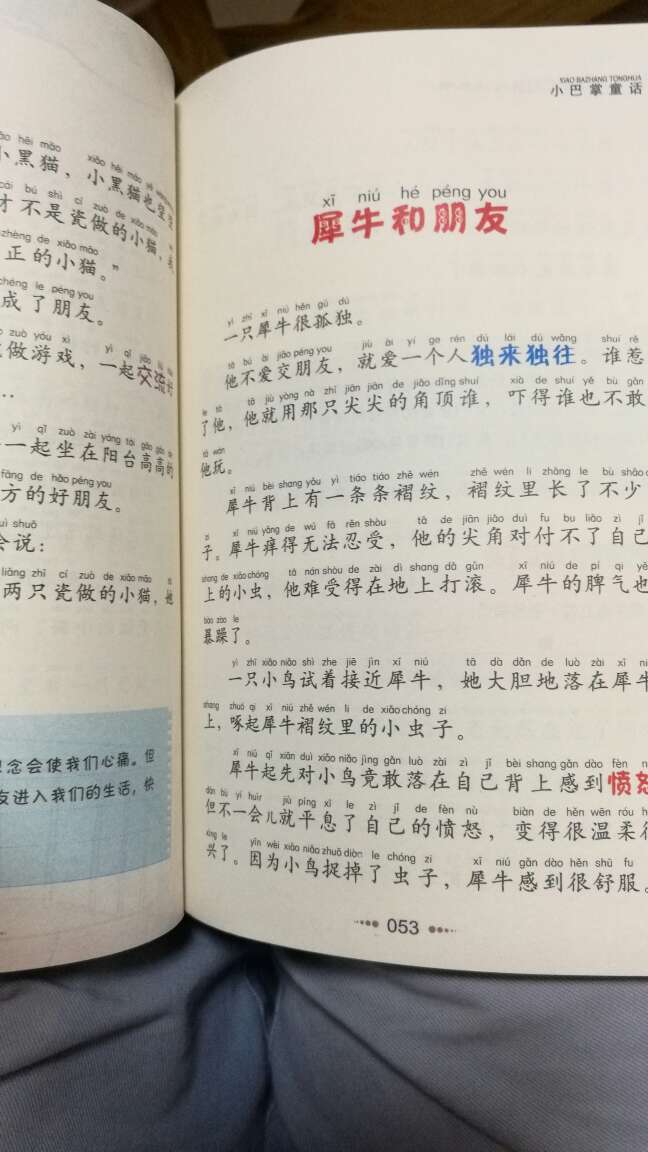 ǎo hēi māo xiǎo hēi māo yě
小黑猫，小黑猫也
cái bú shì cí zuò de xiǎo māo
才不是瓷做的小猫，
zhèng de xiǎo māo
正的小猫。”
chéng le péng you
成了朋友。
zuò yóu xì yì qǐ jiāo liú
做游戏，一起交流
…
yì qǐ zuò zài yáng tái gāo gāo de
一起坐在阳台高高的
fāng de hǎo péng you
方的好朋友。
uì shuō
会说：
liǎng zhī cí zuò de xiǎo māo
两只瓷做的小猫，她
念会使我们心痛。但
友进入我们的生活，快
XIAO BAZHANG TONGHUA
小巴掌童话
xī niú hé péng you
犀牛和朋友
yì zhī xī niú hěn gū dú
一只犀牛很孤独。
tā bú ài jiāo péng you jiù ài yí ge rén dú lái dú wǎng shuí rě
他不爱交朋友，就爱一个人独来独往。谁惹
le tā tā jiù yòng nà zhī jiān jiān de jiǎo dǐng shuí xià de shuí yě bù gǎn
了他，他就用那只尖尖的角顶谁，吓得谁也不敢
tā wán
他玩。
xī niú bèi shang yǒu yì tiáo tiáo zhě wén zhě wén li zhǎng le bù shǎo
犀牛背上有一条条褶纹，褶纹里长了不少
zi xī niú yǎng de wú fǎ rěn shòu tā de jiān jiǎo duì fu bu liǎo zì jǐ
子。犀牛痒得无法忍受，他的尖角对付不了自己
shang de xiǎo chóng tā nán shòu de zài dì shang dǎ gǔn xī niú de pí qi yě
上的小虫，他难受得在地上打滚。犀牛的脾气也
bào zào le
暴躁了。
yì zhī xiǎo niǎo shì zhe jiē jìn xī niú tā dà dǎn de luò zài xī n
一只小鸟试着接近犀牛，她大胆地落在犀牛
shang zhuó qǐ xī niú zhě wén li de xiǎo chóng zi
上，啄起犀牛褶纹里的小虫子。
xī niú qǐ xiān duì xiǎo niǎo jìng gǎn luò zài zì jǐ bèi shang gǎn dào fèn n
犀牛起先对小鸟竟敢落在自己背上感到愤怒
dàn bù yí huìr jiù píng xī le zì jǐ de fèn nù biàn de hěn wēn róu h
但不一会儿就平息了自己的愤怒，变得很温柔很
xìng le yīn wèi xiǎo niǎo zhuō diào le chóng zi xī niú gǎn dào hěn shū fu
兴了。因为小鸟捉掉了虫子，犀牛感到很舒服。
053